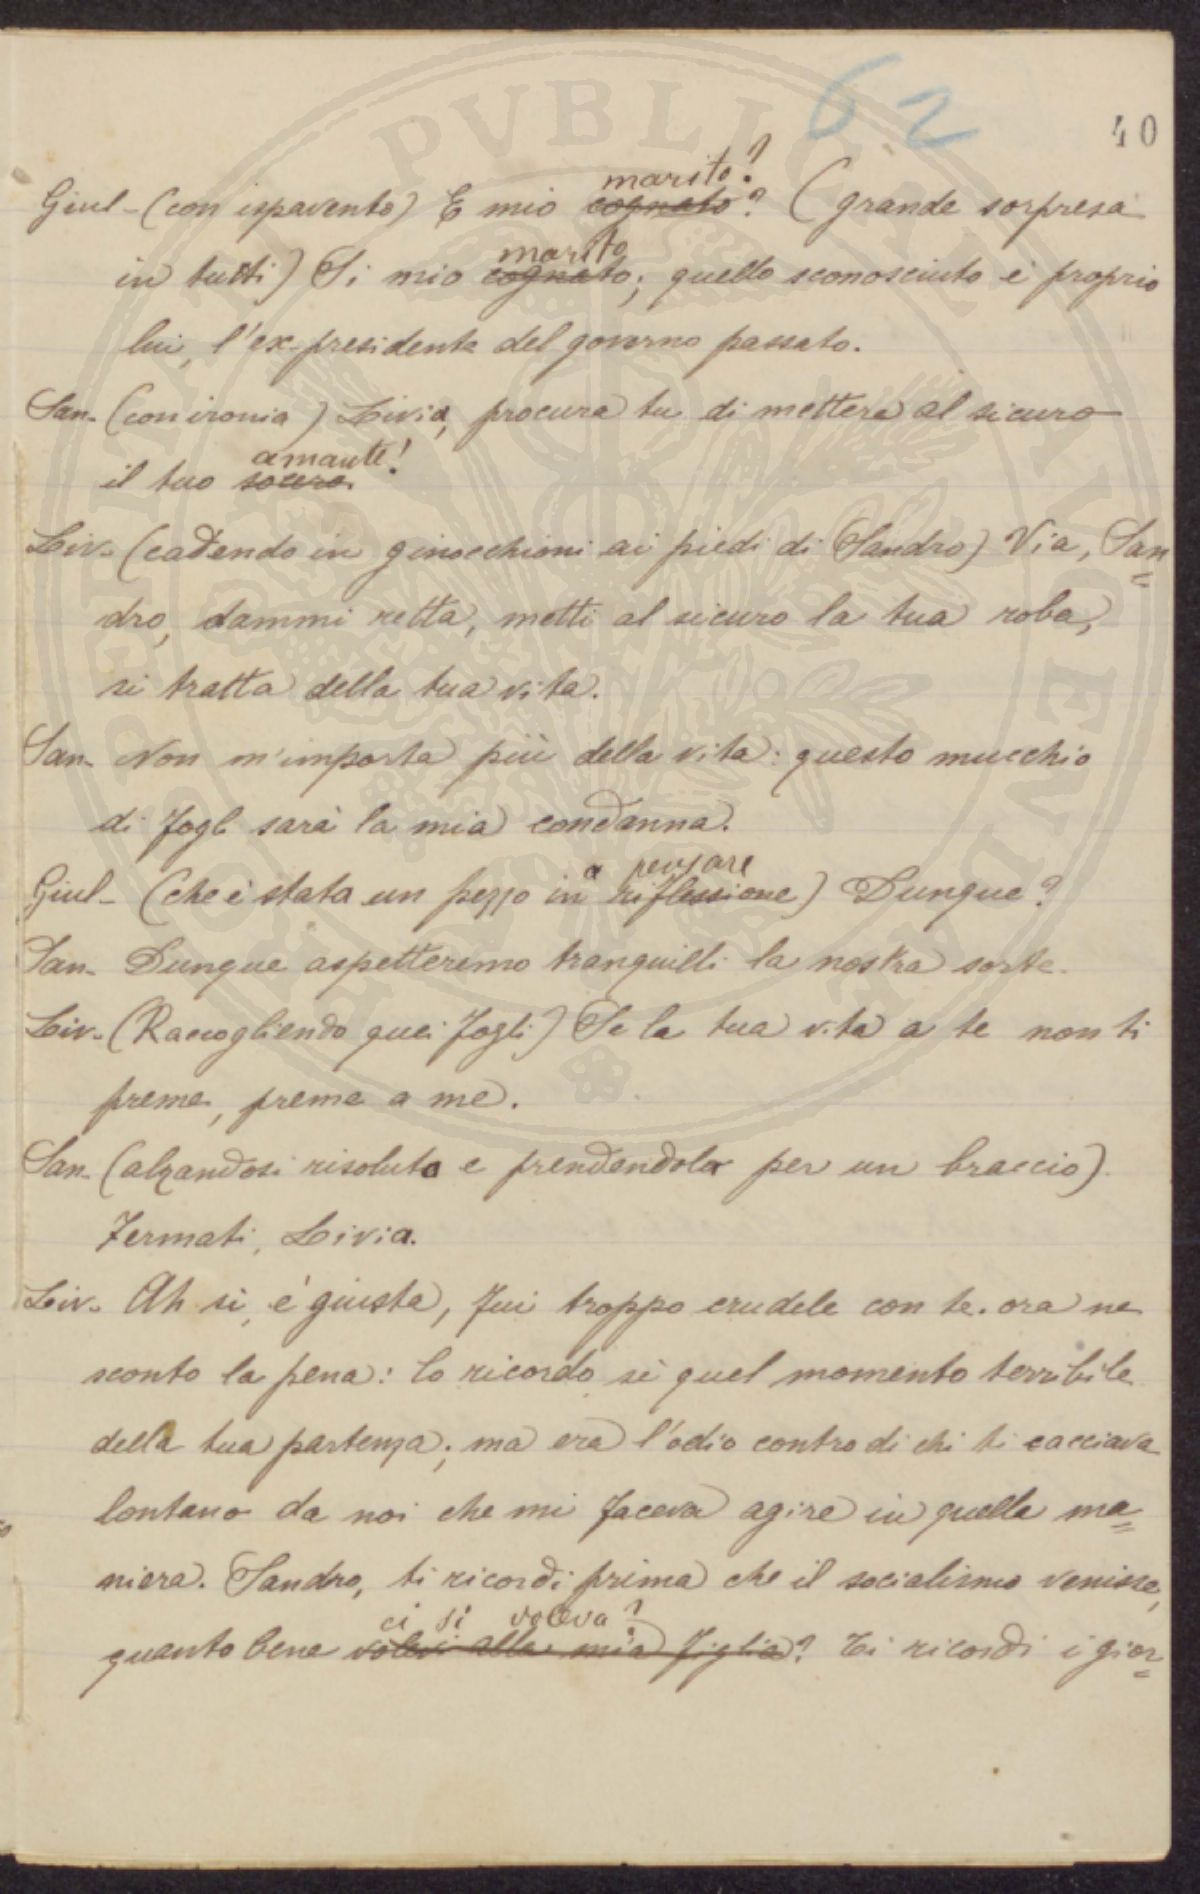 62
40
marito?
Giul - (con ispavento) E mio cognato? (grande sorpresa
marito
in tutti) Si mio cognato; quello sconosciuto è proprio
lui, l'ex-presidente del governo passato.
San - (con ironia) Livia, procura tu di mettere al sicuro
amante!
il tuo socero.
Liv - (cadendo in ginocchioni ai piedi di Sandro) Via, San=
dro, dammi retta, metti al sicuro la tua roba,
si tratta della tua vita.
San - Non m'importa più della vita: questo mucchio
di fogli sarà la mia condanna.
a pensare
Giul - (che è stata un pezzo in riflessione) Dunque?
San - Dunque aspetteremo tranquilli la nostra sorte.
Liv - (Raccogliendo quei fogli) Se la tua vita a te non ti
preme, preme a me.
San - (alzandosi risoluto e prendendola per un braccio)
Fermati, Livia.
Liv - Ah si, è giusto, fui troppo crudele con te. ora ne
sconto la pena: lo ricordo sì quel momento terribile
della tua partenza; ma era l'odio contro di chi ti cacciava
lontano da noi che mi faceva agire in quella ma=
niera. Sandro, ti ricordi prima che il socialismo venisse,
ci si voleva?
quanto bene volevi alla mia figlia? Ti ricordi i gior=